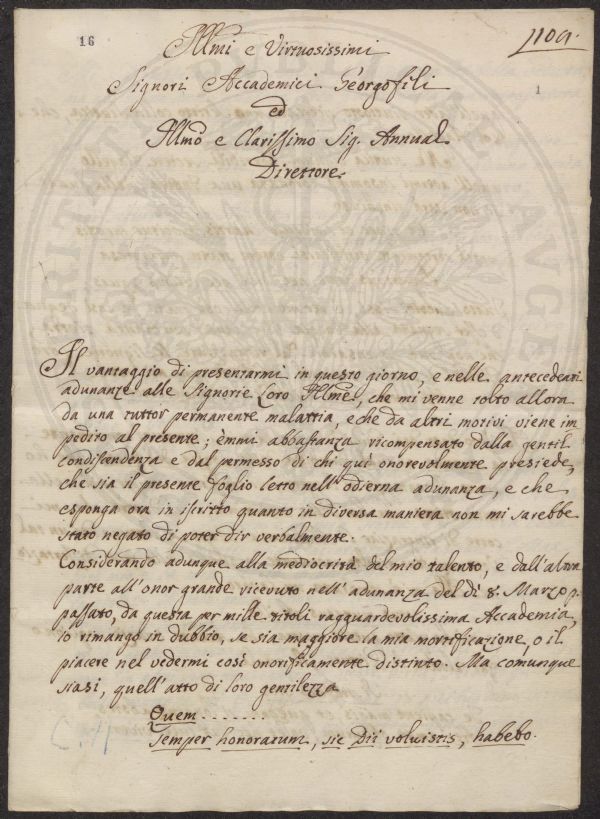 16
110a.
1
Illmi e Virtuosissimi
Signori Accademici Georgofili
ed
Illmo e Clarissimo Sig. Annual
Direttore
Il vantaggio di presentarmi in questo giorno, e nelle antecedenti
adunanze alle Signorie Loro Illme, che mi venne tolto allora
da una tuttor permanente malattia, e che da altri motivi viene im
pedito al presente; emmi abbastanza ricompensato dalla gentil
condiscendenza e dal permesso di chi quì onorevolmente presiede,
che sia il presente foglio letto nell'odierna adunanza, e che
esponga ora in iscritto quanto in diversa maniera non mi sarebbe
stato negato di poter dir verbalmente.
Considerando adunque alla mediocrità del mio talento, e dall'altra
parte all'onor grande ricevuto nell'adunanza del dì 8. Marzo p.
passato, da questa per mille titoli ragguardevolissima Accademia,
io rimango in dubbio, se sia maggiore la mia mortificazione, o il
piacere nel vedermi così onorificamente distinto. Ma comunque
siasi, quell'atto di loro gentilezza
Quem .......
Semper honoratum, sic Dii voluistis, habebo.